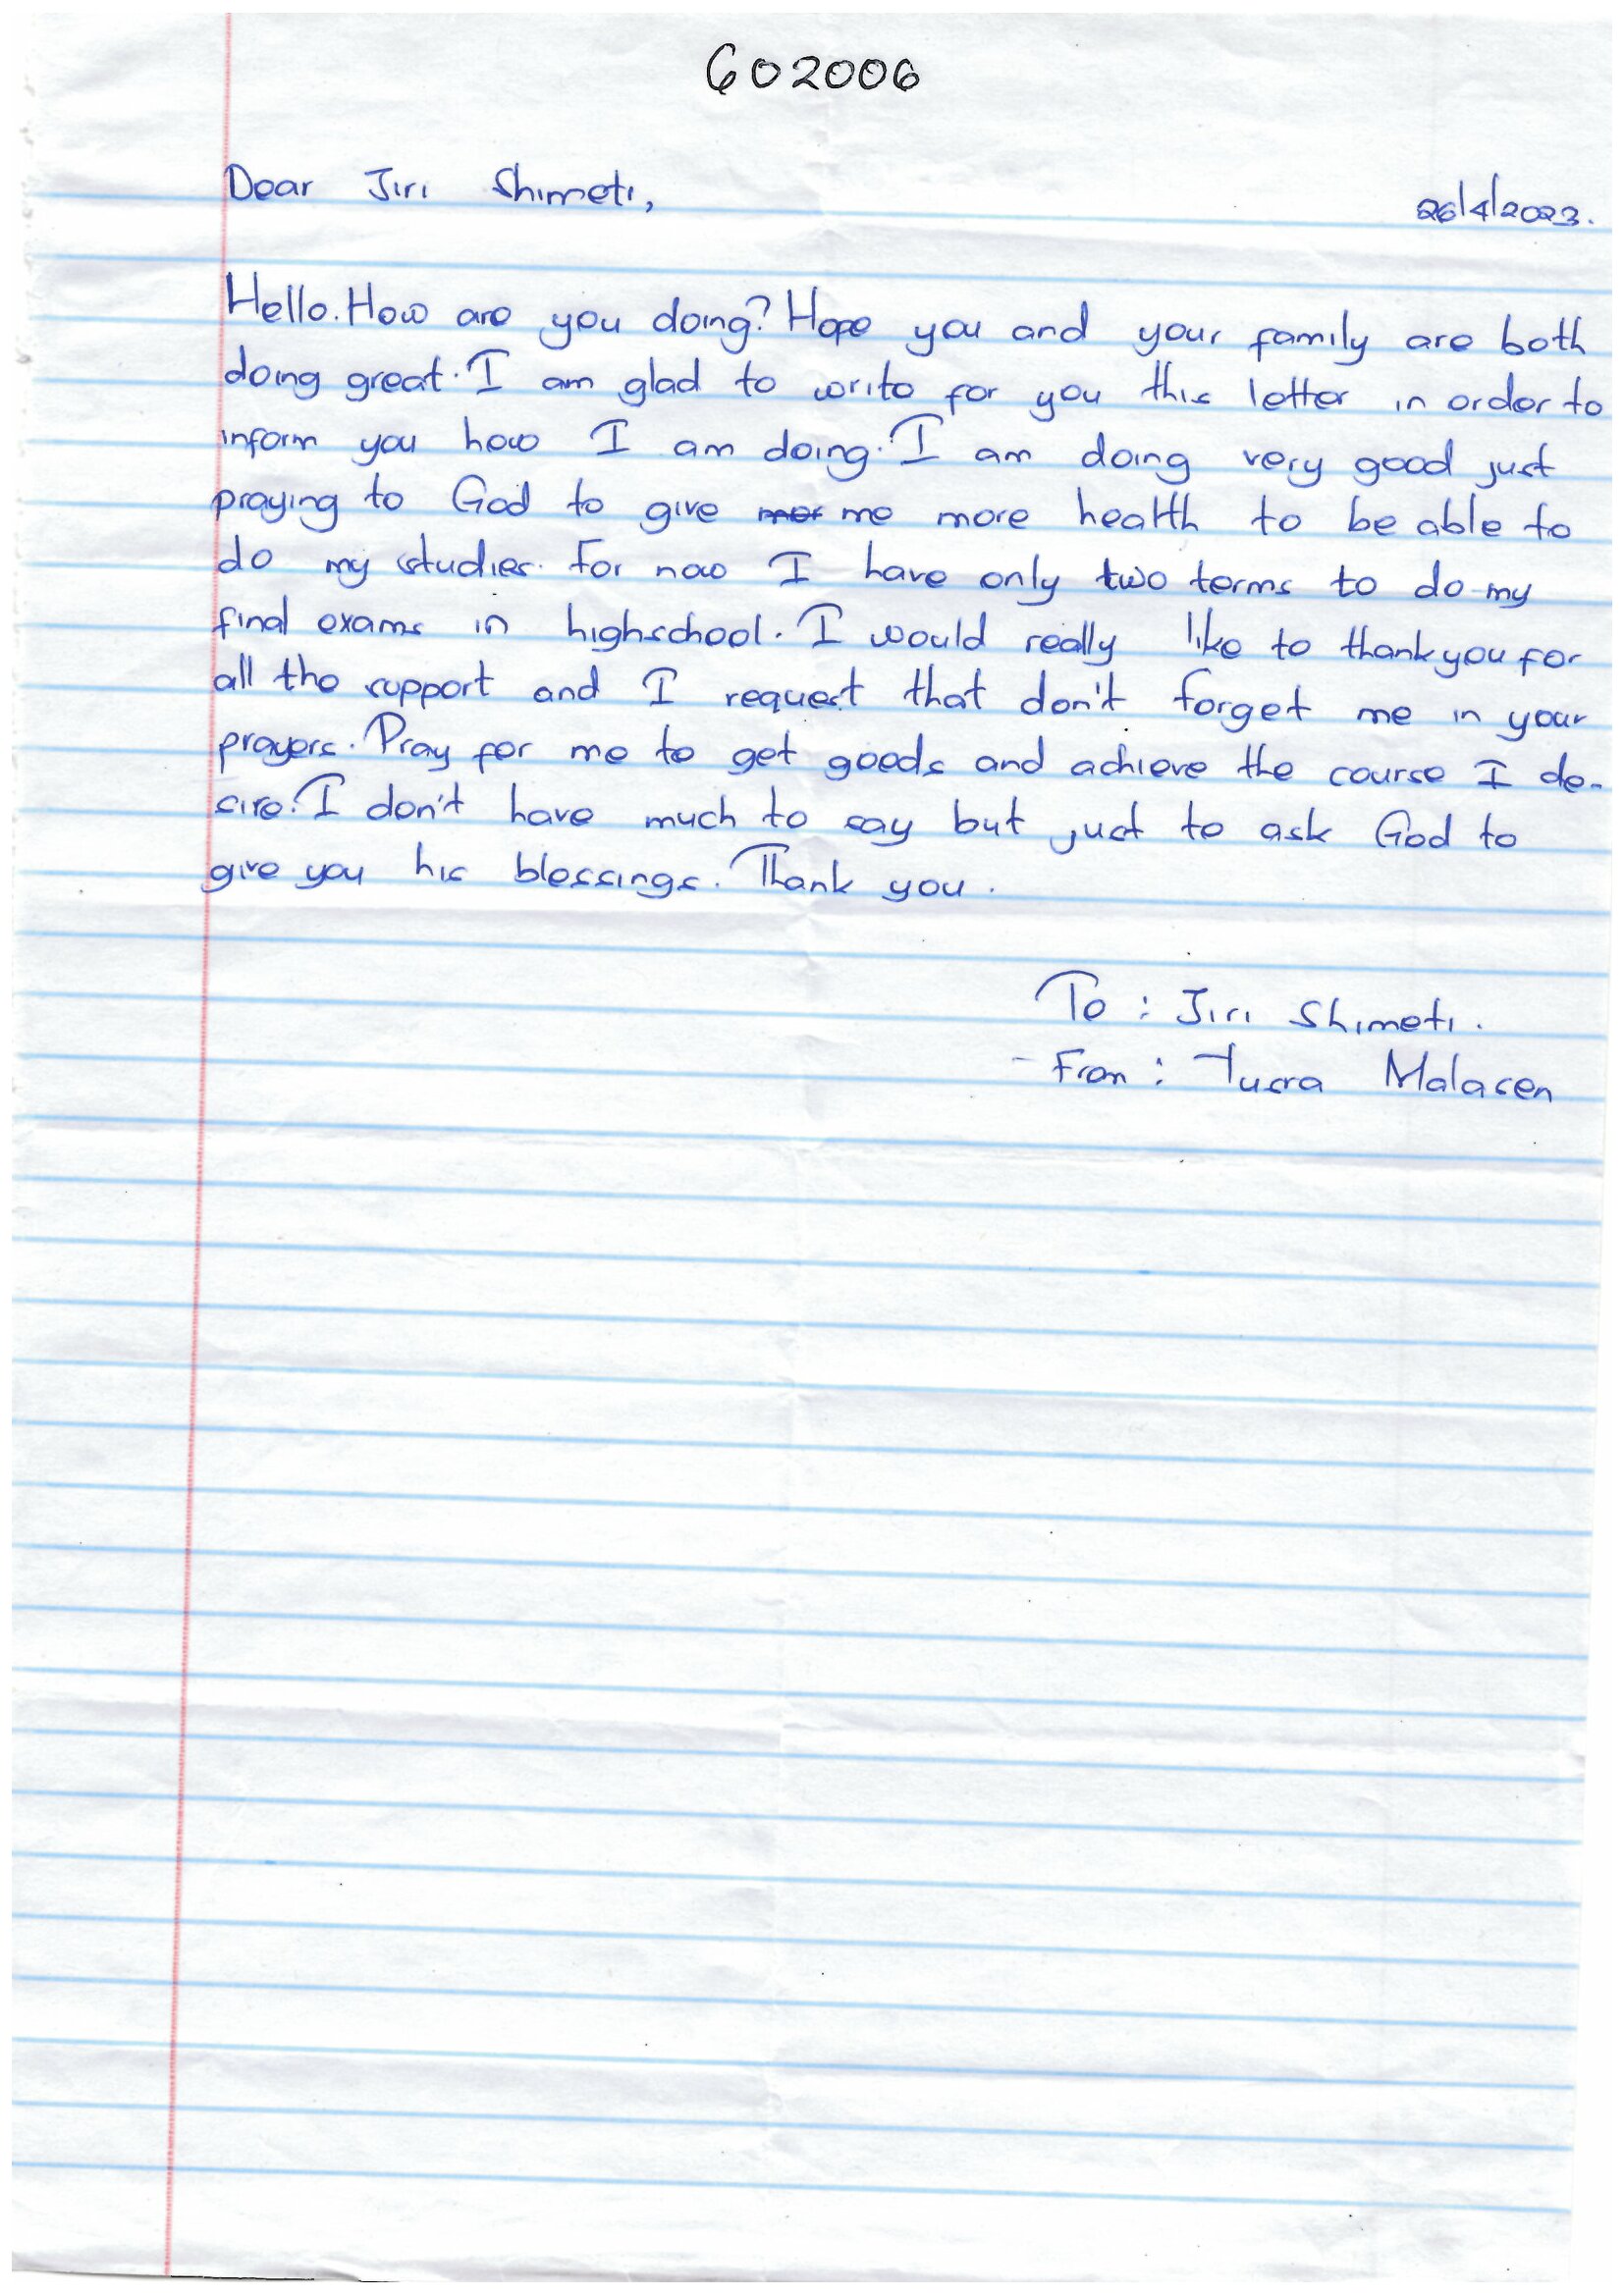 602006
Dear Jiri Shimeti,
26/4/2023.
Hello. How are you doing? Hope you and your family are both
doing great. I am glad to write for you this letter in order to
inform you how I am doing. I am doing very good just
praying to God to give me more health to be able to
do my studies. For now I have only two terms to do my
final exams in highschool. I would really like to thank you for
all the support and I request that don't forget me in your
prayers. Pray for me to get goods and achieve the course I de-
sire. I don't have much to say but just to ask God to
give you his blessings. Thank you.
To : Jiri Shimeti.
- From : Tusra Malasen